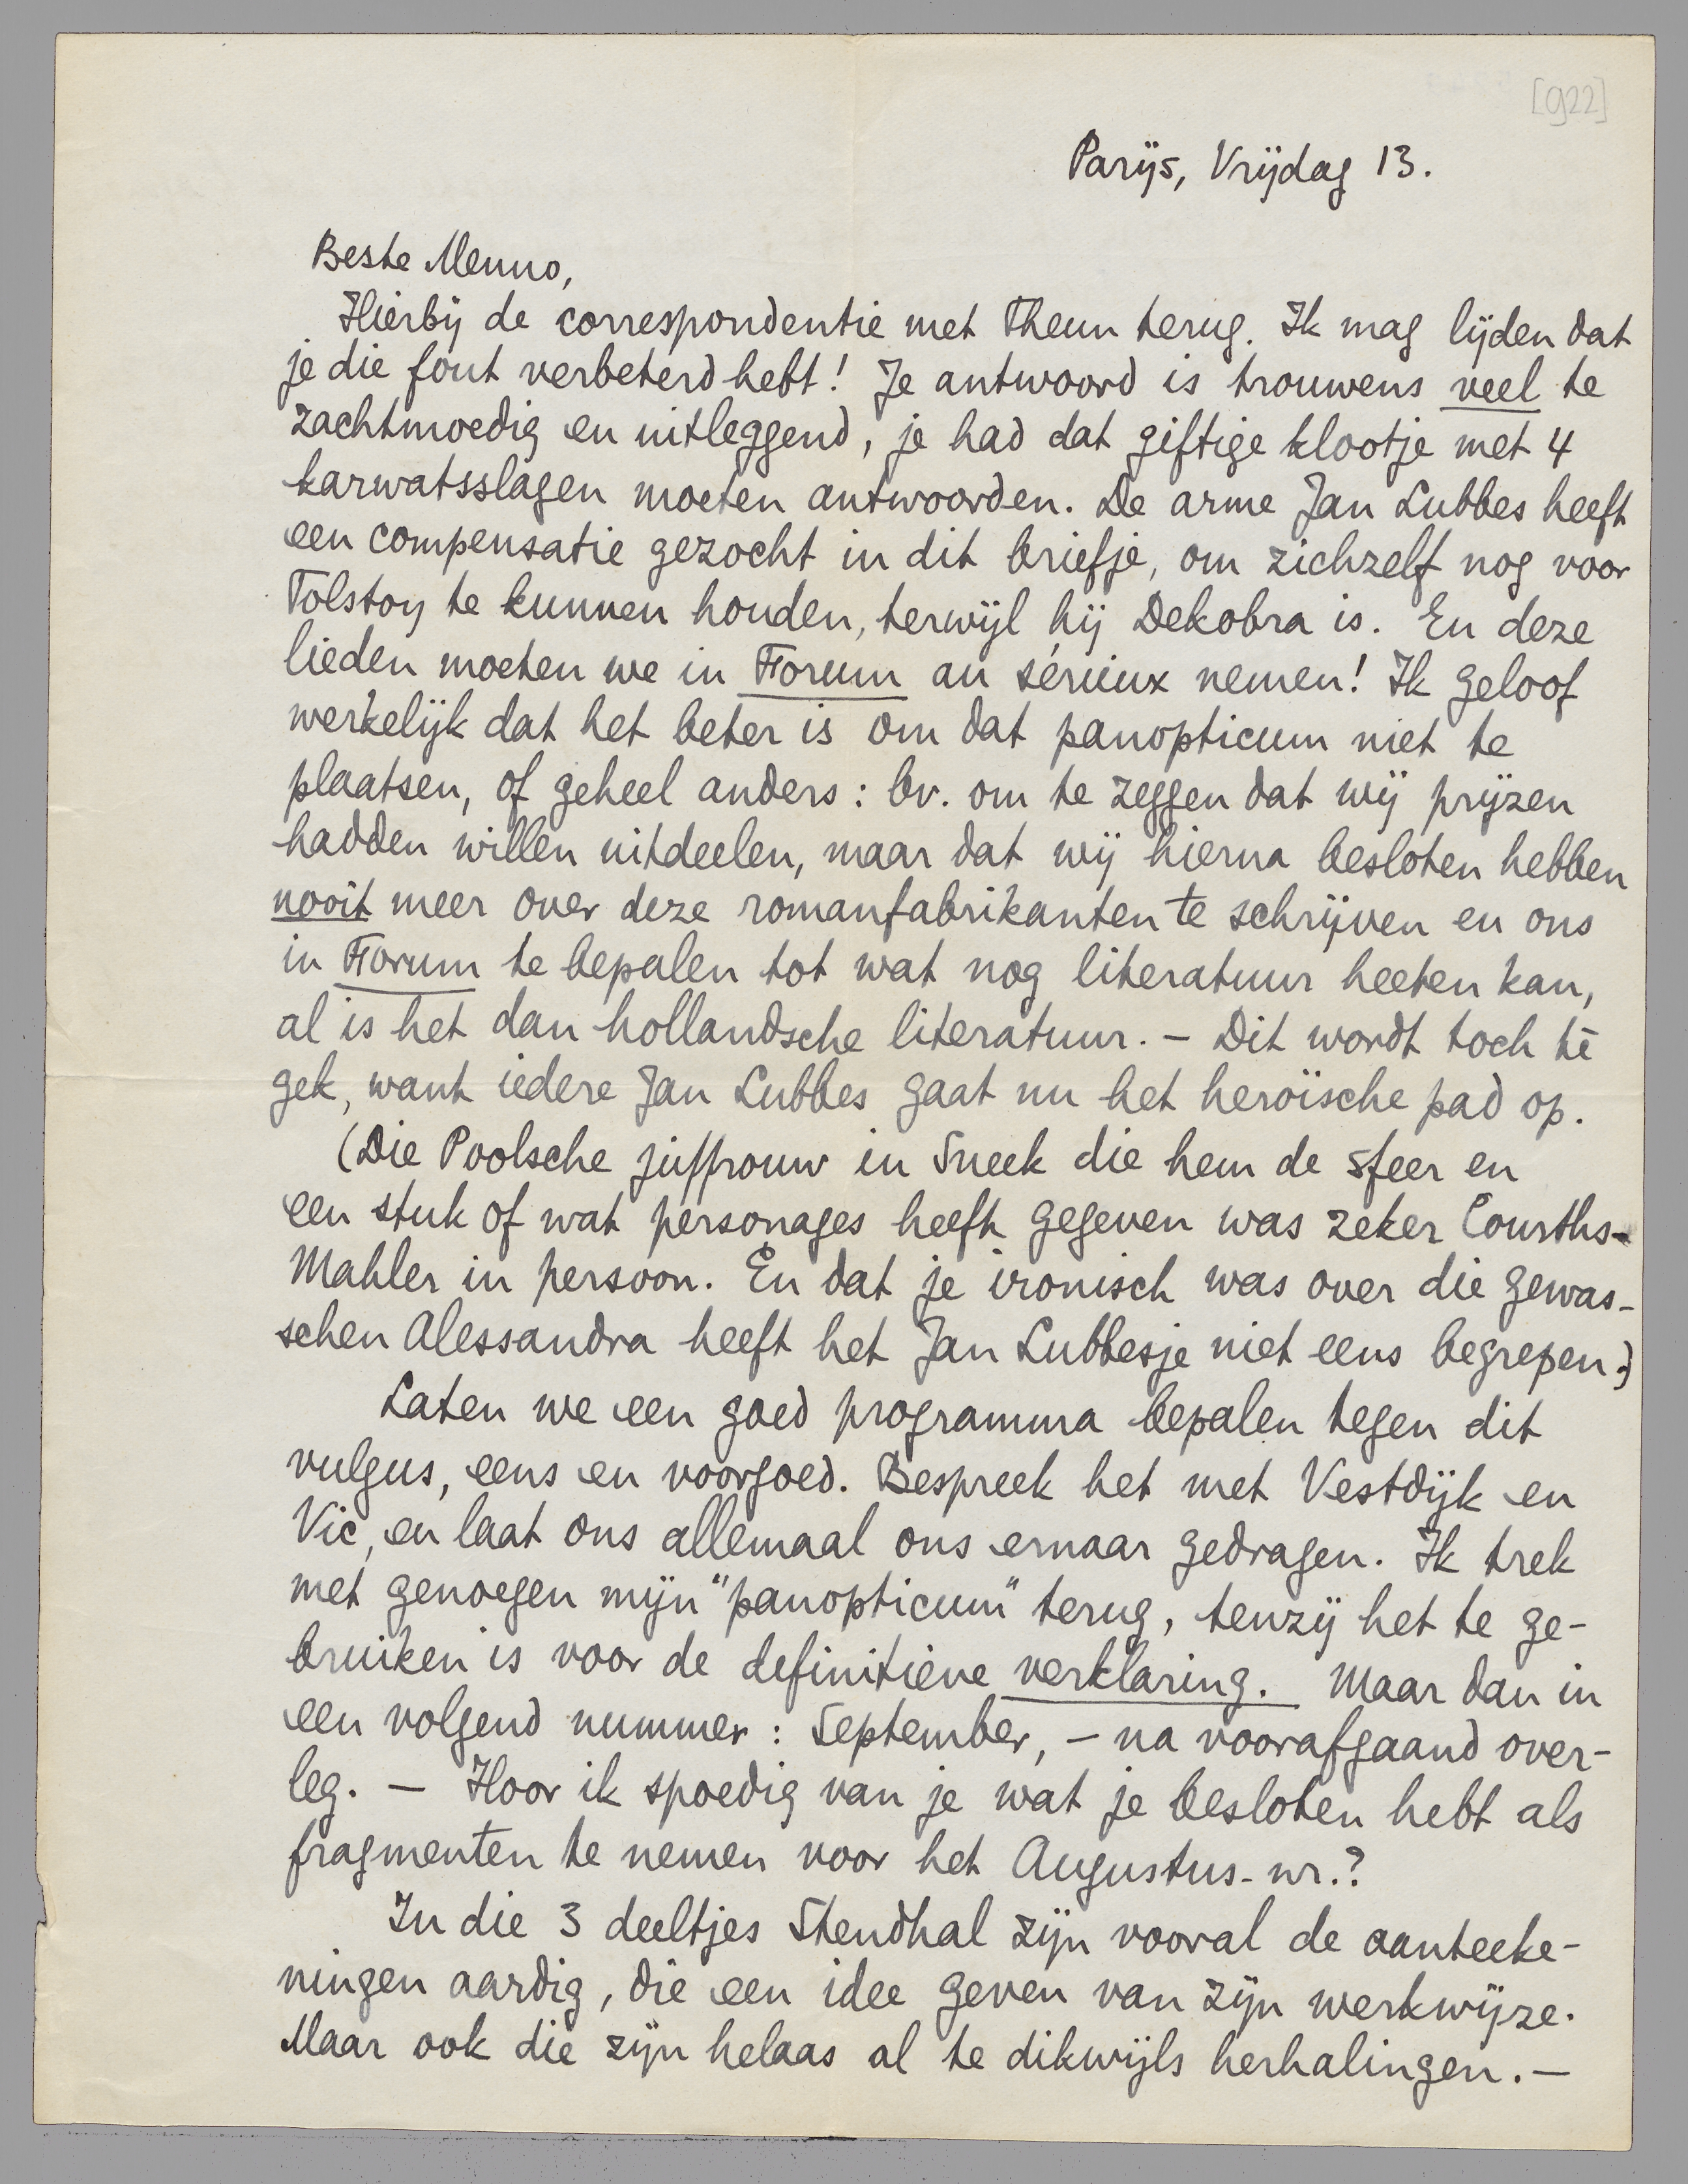 [922]
Parijs, Vrijdag 13.
Beste Menno,
Hierbij de correspondentie met Theun terug. Ik mag lijden dat
je die fout verbeterd hebt! Je antwoord is trouwens veel te
zachtmoedig en uitleggend, je had dat giftige klootje met 4
karwatsslagen moeten antwoorden. De arme Jan Lubbes heeft
een compensatie gezocht in dit briefje, om zichzelf nog voor
Tolstoy te kunnen houden, terwijl hij Dekobra is. En deze
lieden moeten we in Forum au sérieux nemen! Ik geloof
werkelijk dat het beter is om dat panopticum niet te
plaatsen, of geheel anders: bv. om te zeggen dat wij prijzen
hadden willen uitdeelen, maar dat wij hierna besloten hebben
nooit meer over deze romanfabrikanten te schrijven en ons
in Forum te bepalen tot wat nog literatuur heeten kan,
al is het dan hollandsche literatuur. – Dit wordt toch té
gek, want iedere Jan Lubbes gaat nu het heroïsche pad op.
(Die Poolsche juffrouw in Sneek die hem de sfeer en
een stuk of wat personages heeft gegeven was zeker Courths-
Mahler in persoon. En dat je ironisch was over die gewas-
schen Alessandra heeft het Jan Lubbesje niet eens begrepen.)
Laten we een goed programma bepalen tegen dit
vulgus, eens en voorgoed. Bespreek het met Vestdijk en
Vic, en laat ons allemaal ons ernaar gedragen. Ik trek
met genoegen mijn "panopticum" terug, tenzij het te ge-
bruiken is voor de definitieve verklaring. Maar dan in
een volgend nummer: September, – na voorafgaand over-
leg. – Hoor ik spoedig van je wat je besloten hebt als
fragmenten te nemen voor het Augustus-nr.?
In die 3 deeltjes Stendhal zijn vooral de aanteeke-
ningen aardig, die een idee geven van zijn werkwijze.
Maar ook die zijn helaas al te dikwijls herhalingen. –